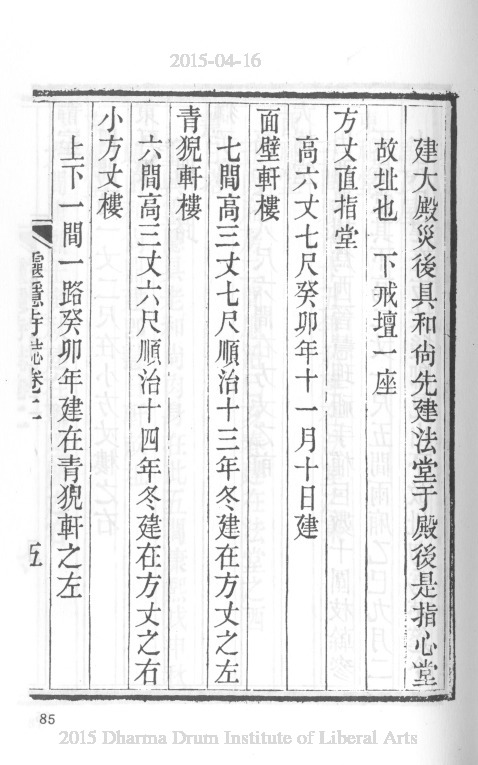 2015-04-16
建大殿災後具和尙先建法堂于殿後是指心堂
故址也　下戒壇一座
方丈直指堂
高六丈七尺癸卯年十一月十日建
面壁軒樓
七間高三丈七尺順治十三年冬建在方丈之左
青猊軒樓
六間高三丈六尺順治十四年冬建在方丈之右
小方丈樓
上下一間一路癸卯年建在青猊軒之左
靈隱寺誌卷二
五
85
2015 Dharma Drum Institute of Liberal Arts